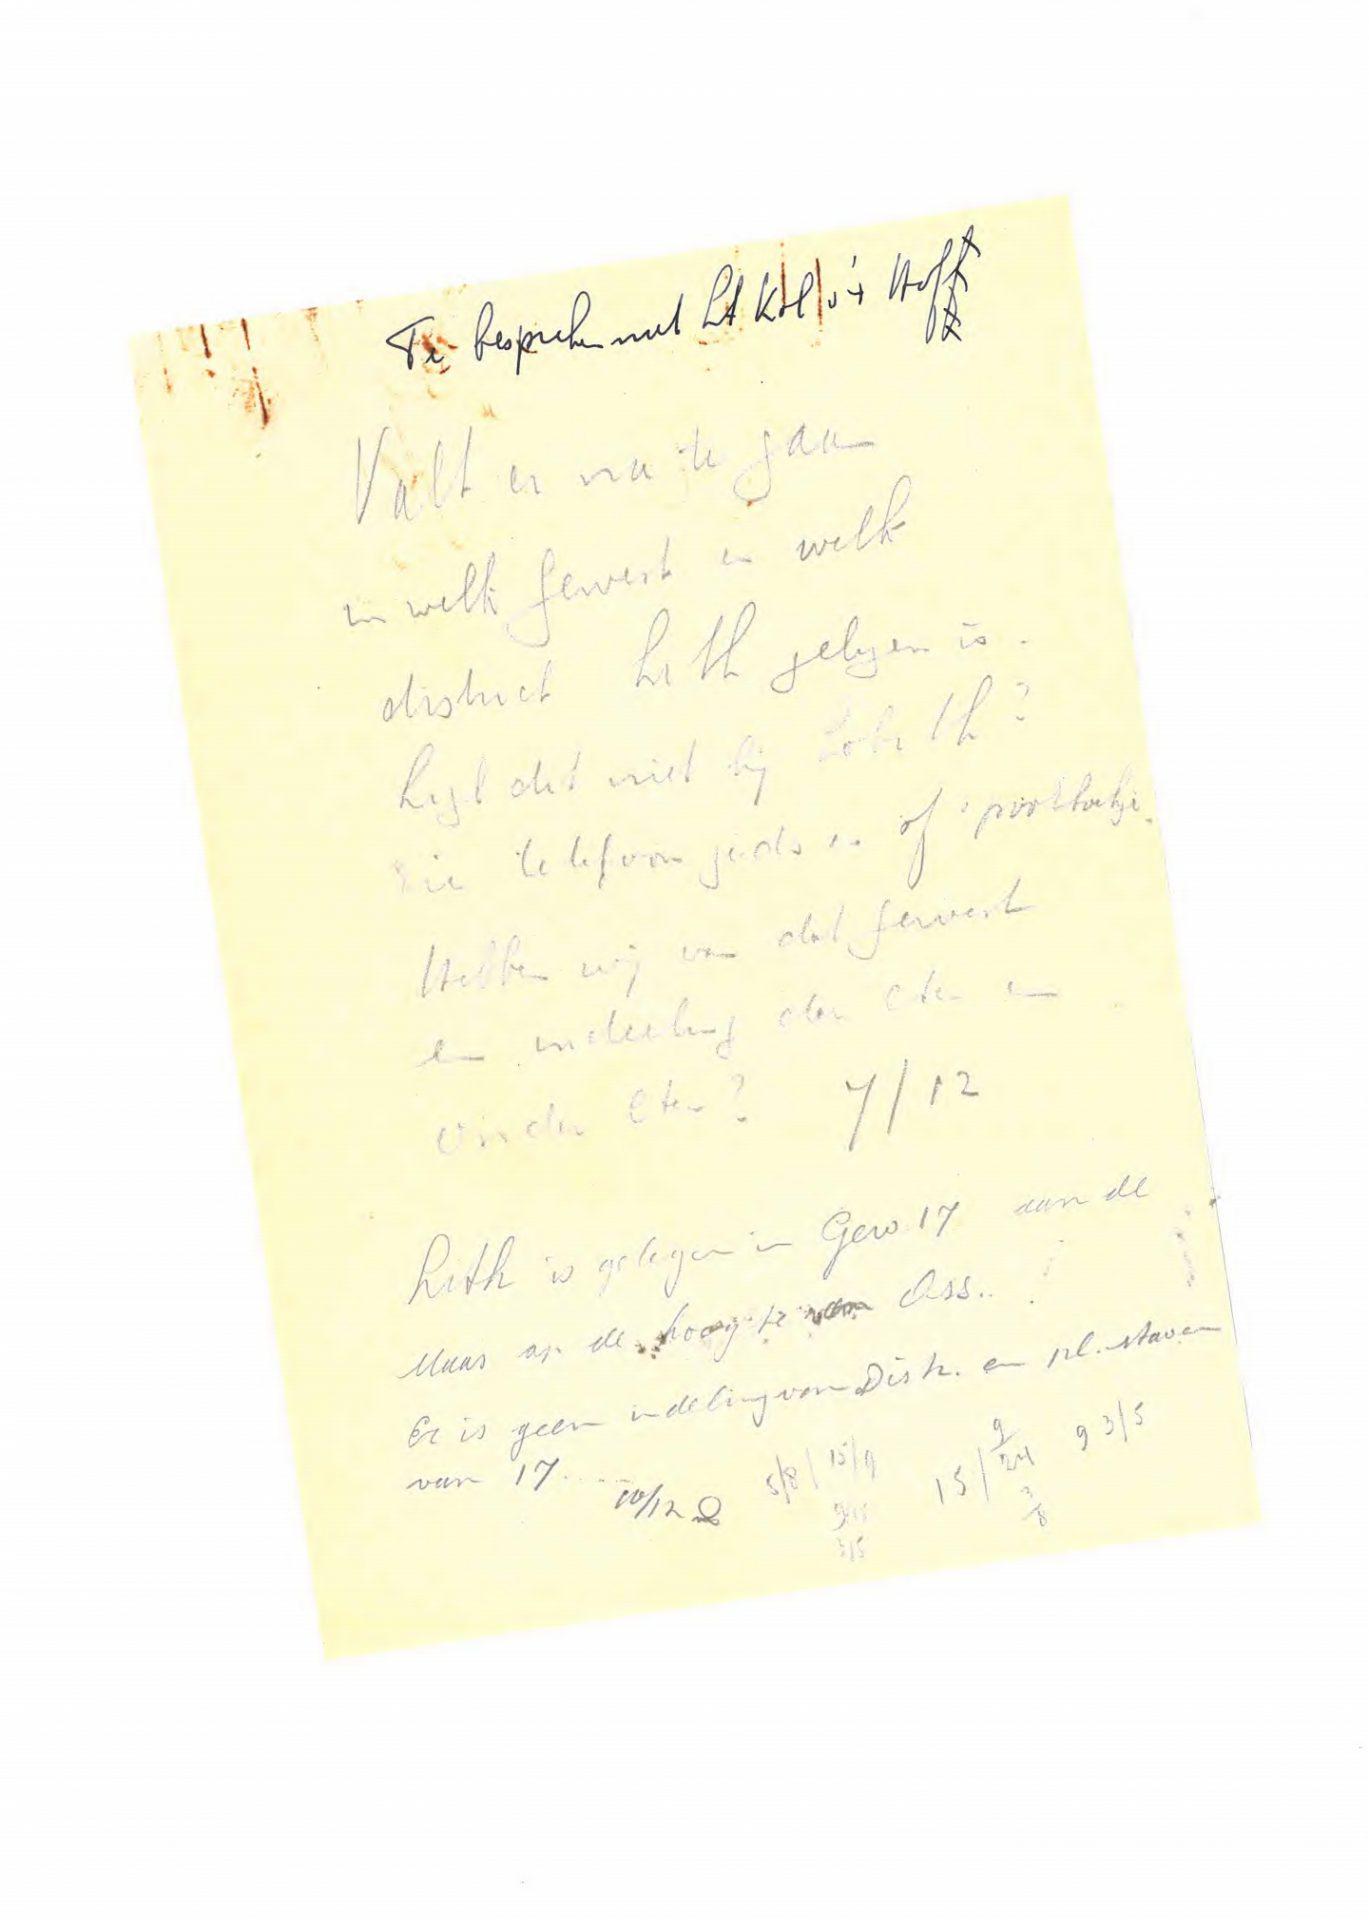 Te bespreken met Lt Kol v't Hoff
Valt er na te gaan
in welk gewest en welk
district Lith gelegen is.
Ligt dit niet bij Lobith?
zie telefoon gids en of postboekje.
Hebben wij van dat gewest
een indeeling der Cten en
onder Cten? 7/12
Lith is gelegen in Gew. 17 aan de
Maas op de hoogte van Oss..
Er is geen indeling van Distr. en pl. staven
van 17.....
10/12
5/8 | 15/9
3/5
15 | 9/24
3/8
9 3/5